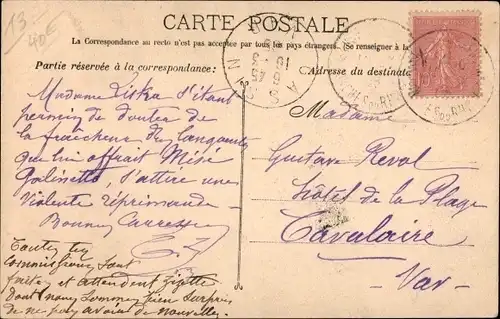 13
40€
CARTE POSTALE
La Correspondance au recto n'est pas acceptée par tous les pays étrangers. (Se renseigner à la
Partie réservée à la correspondance:
Adresse du destinata
Madame Liska s'étant
permis de douter de
la fraîcheur des langoustes
que lui offrait Misé
s'attire une
violente réprimande
Bonnes Caresses
Toutes tes
commissions sont
faites et attendent
dont nous sommes bien surpris
de ne pas avoir de nouvelles.
Madame
Gustave Reval
hôtel de la Plage
Cavalaire
Var